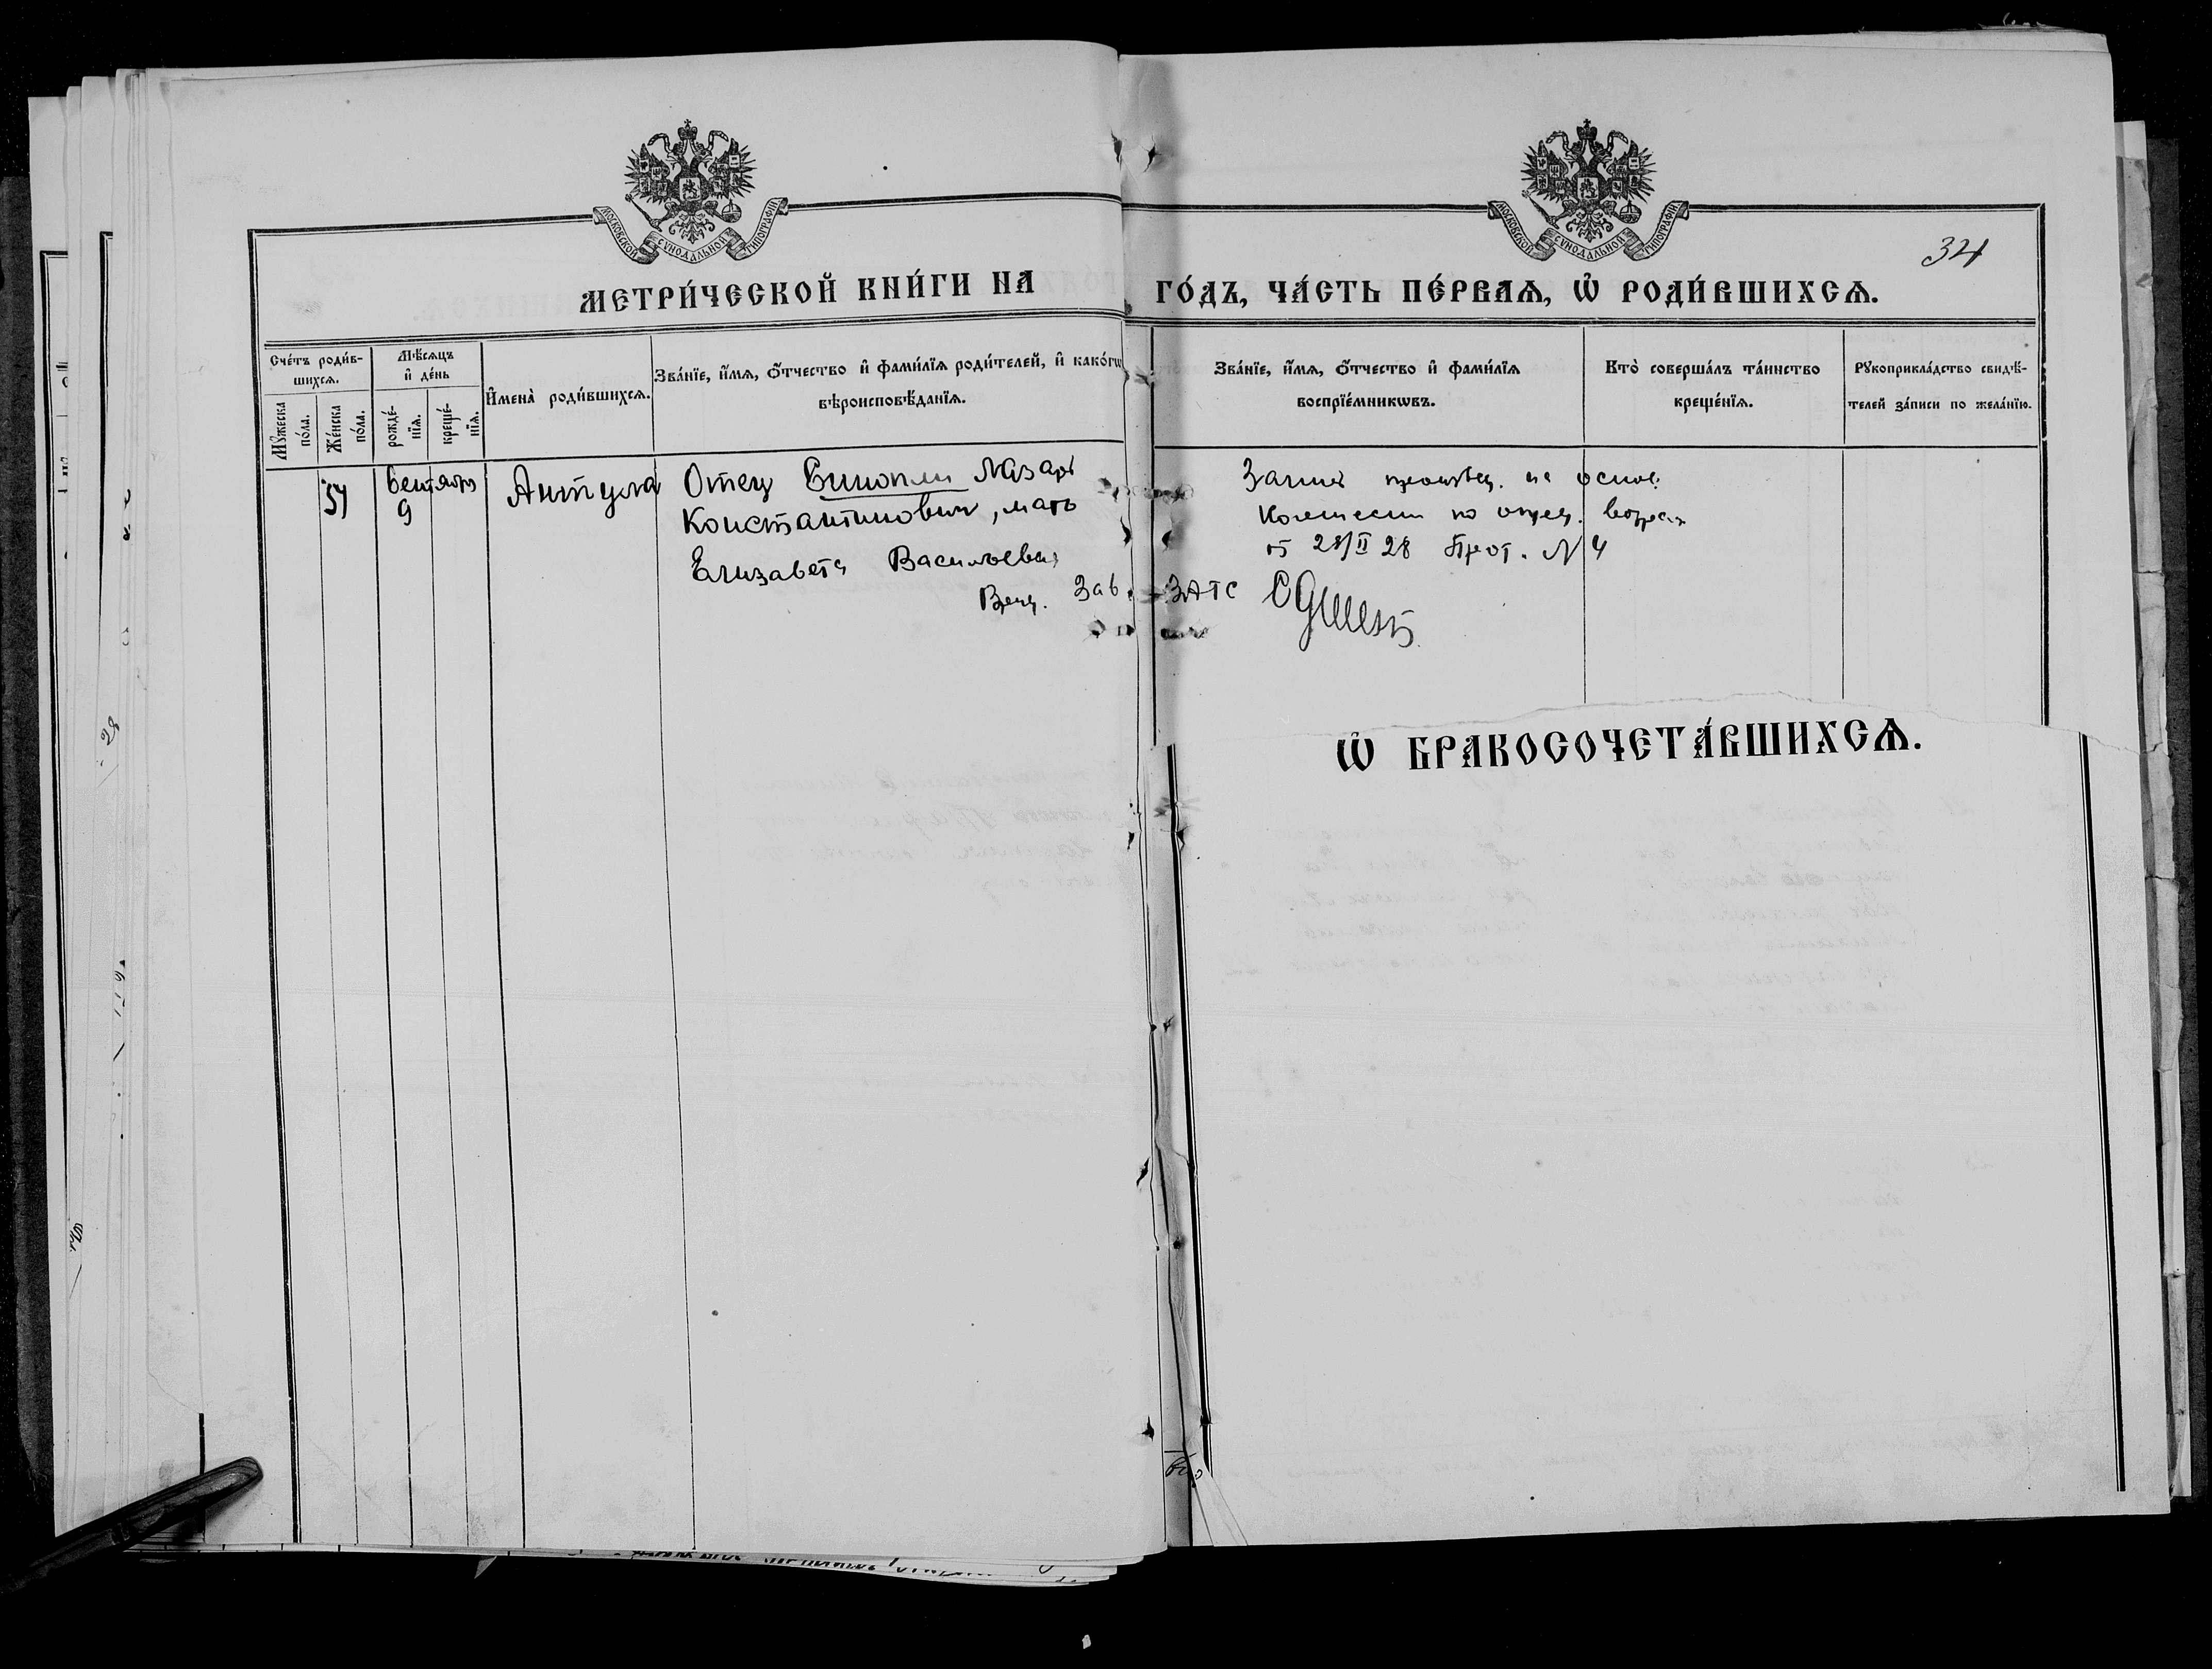 МОСКОВСКОЙ СУНОДАЛЬНОЙ ТИПОГРАФІИ
МОСКОВСКОЙ СУНОДАЛЬНОЙ ТИПОГРАФІИ
34
МЕТРИ́ЧЕСКОЙ КНИ́ГИ НА ГО́ДЪ, ЧА́СТЬ ПЕ́РВАѦ, Ѡ҆ РОДИ́ВШИХСѦ.
Сче́тъ роди́в-
шихсѧ.
Мѹ́жеска по́ла.
Же́нска по́ла.
Мѣ́сѧцъ
и҆ де́нь
рожде́-нїѧ.
креще́-нїѧ.
И҆мена̀ роди́вшихсѧ.
Зва́нїе, и҆́мѧ, ѻ҆́тчество и҆ фами́лїѧ роди́телей, и҆ како́гѡ
вѣроисповѣ́данїѧ.
Зва́нїе, и҆́мѧ, ѻ҆́тчество и҆ фами́лїѧ
воспрїе́мникѡвъ.
Кто̀ соверша́лъ та́инство
креще́нїѧ.
Рꙋкоприкла́дство свидѣ́-
телей за́писи по жела́нїю.
54
Сентября
9
Отец Лазарь
Константинович, мать
Елизавета Васильевна
на основ.
Комиссии по опред. возраста
от 28/II 28 Прот. N 4
Зав. ЗАГС
Ѡ҆ БРАКОСОЧЕТА́ВШИХСѦ.